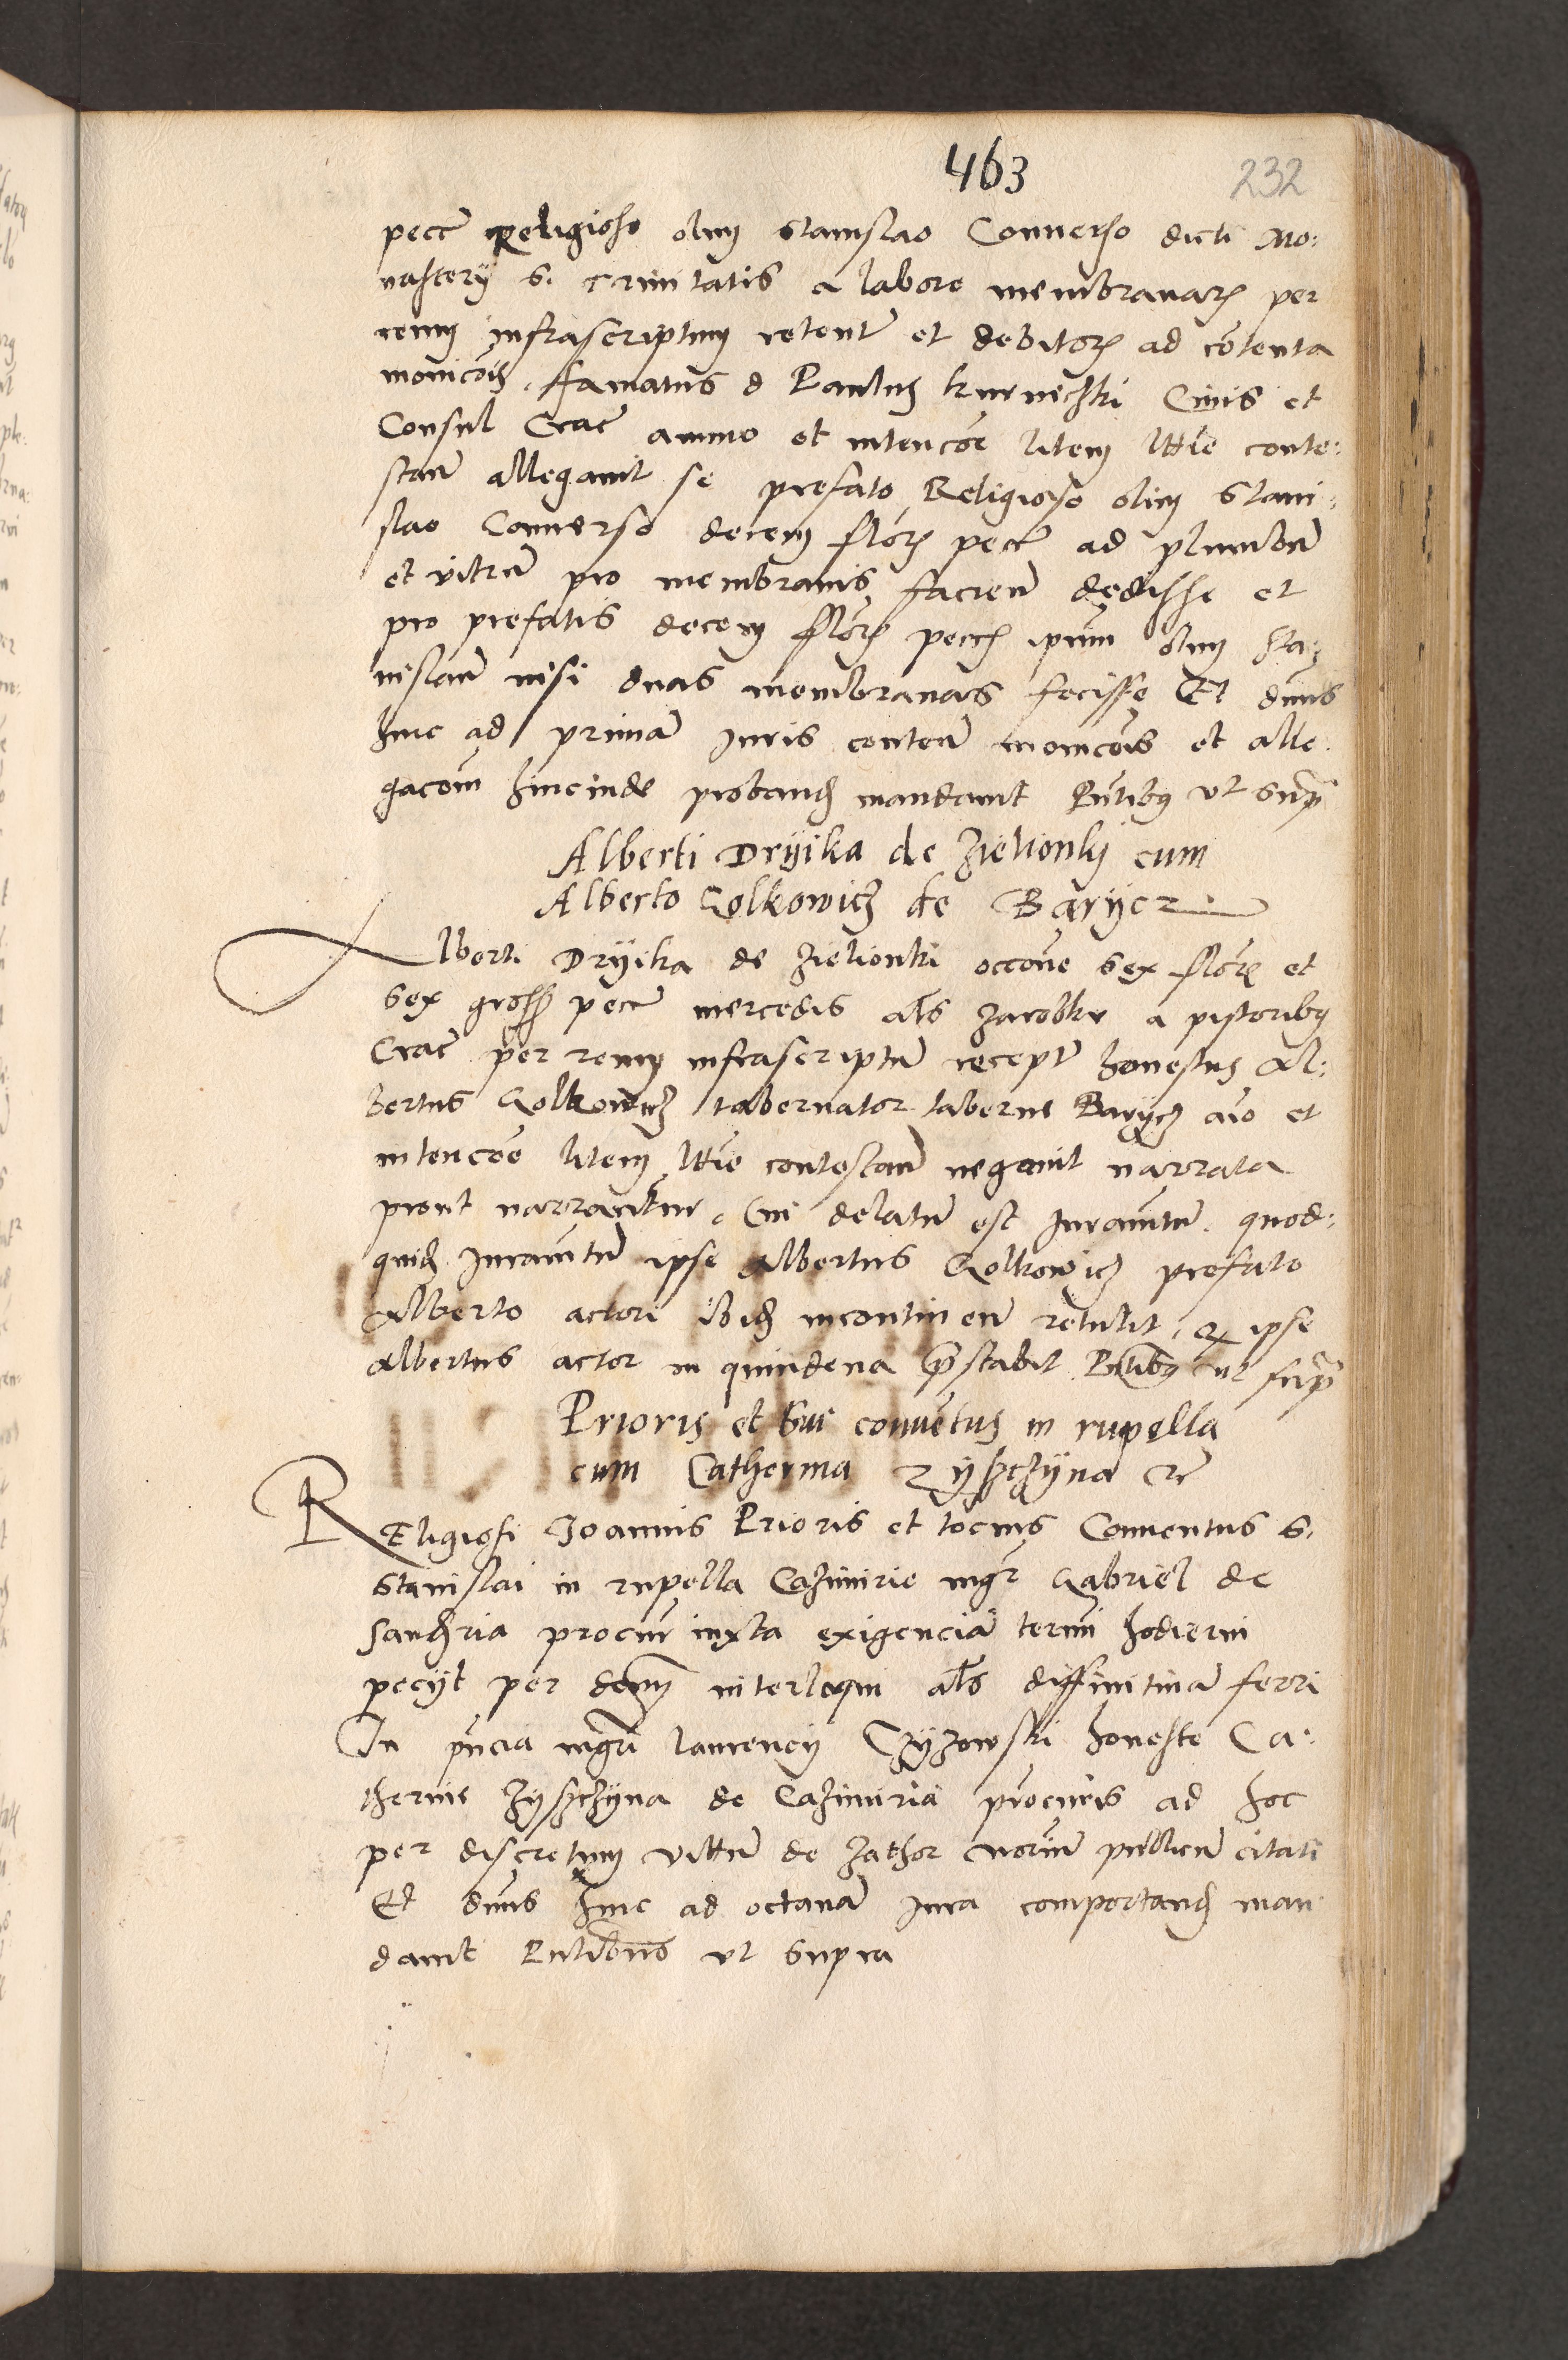 463
232
pecc Religioso olim Stanislao Conuerso dicti Mo:
nastery S. Trinitatis a labore membranarum per
reum infrascriptum retent et debitorum ad contenta
monicois. famatus d Paulus kurnichki Ciuis et
Consul Crac animo et intencoe litem lttie conte:
stan allegauit se prefato Religioso olim Stani:
slao Conuerso decem flor pecc ad plumbum
et vitrum pro membranis facien dedisse et
pro prefatis decem flor pecc ipsum olim sta:
nislaum nisi duas membranas fecisse Et dnus
hinc ad primam Juris conten monicois et alle:
gacom hincinde proband mandauit Pntibus vt supra
Alberti Dryika de Zielionky cum
Alberto Golkowicz de Barycz
Alberti Dryika de Zielionki occone sex flor et
sex gross pecc mercedis als zarobku a pistoribus
Crac per reum infrascriptum recept honestus Al:
bertus Golkowicz tabernator taberne Barycz aio et
intencoe litem lttie contestan negauit narrata
prout narrantur. Cui delatum est Juramtum. quod:
quid Juramtum ipse Albertus Golkowicz prefato
Alberto actori ibid incontinen retulit, et ipse
Albertus actor in quindena prestabit Pntibus ut supra
Prioris et Sui conuetus in rupella
cum Catherina Zyszchyna re
REligiosi Joannis Prioris et tocius Conuentus S.
Stanislai in rupella Cazimirie mgr Gabriel de
Sandzria procur iuxta exigenciam termi hodierni
pecyt per dnum interloqui als diffinitiuam ferri
In pncia mgri laurency Czyzowski honeste Ca:
therine Zyszchyna de Cazimiria procuris ad hoc
per discretum vittum de Zathor norium publicum citati
Et dnus hinc ad octauam Jura comportand man
dauit Pntibus vt supra